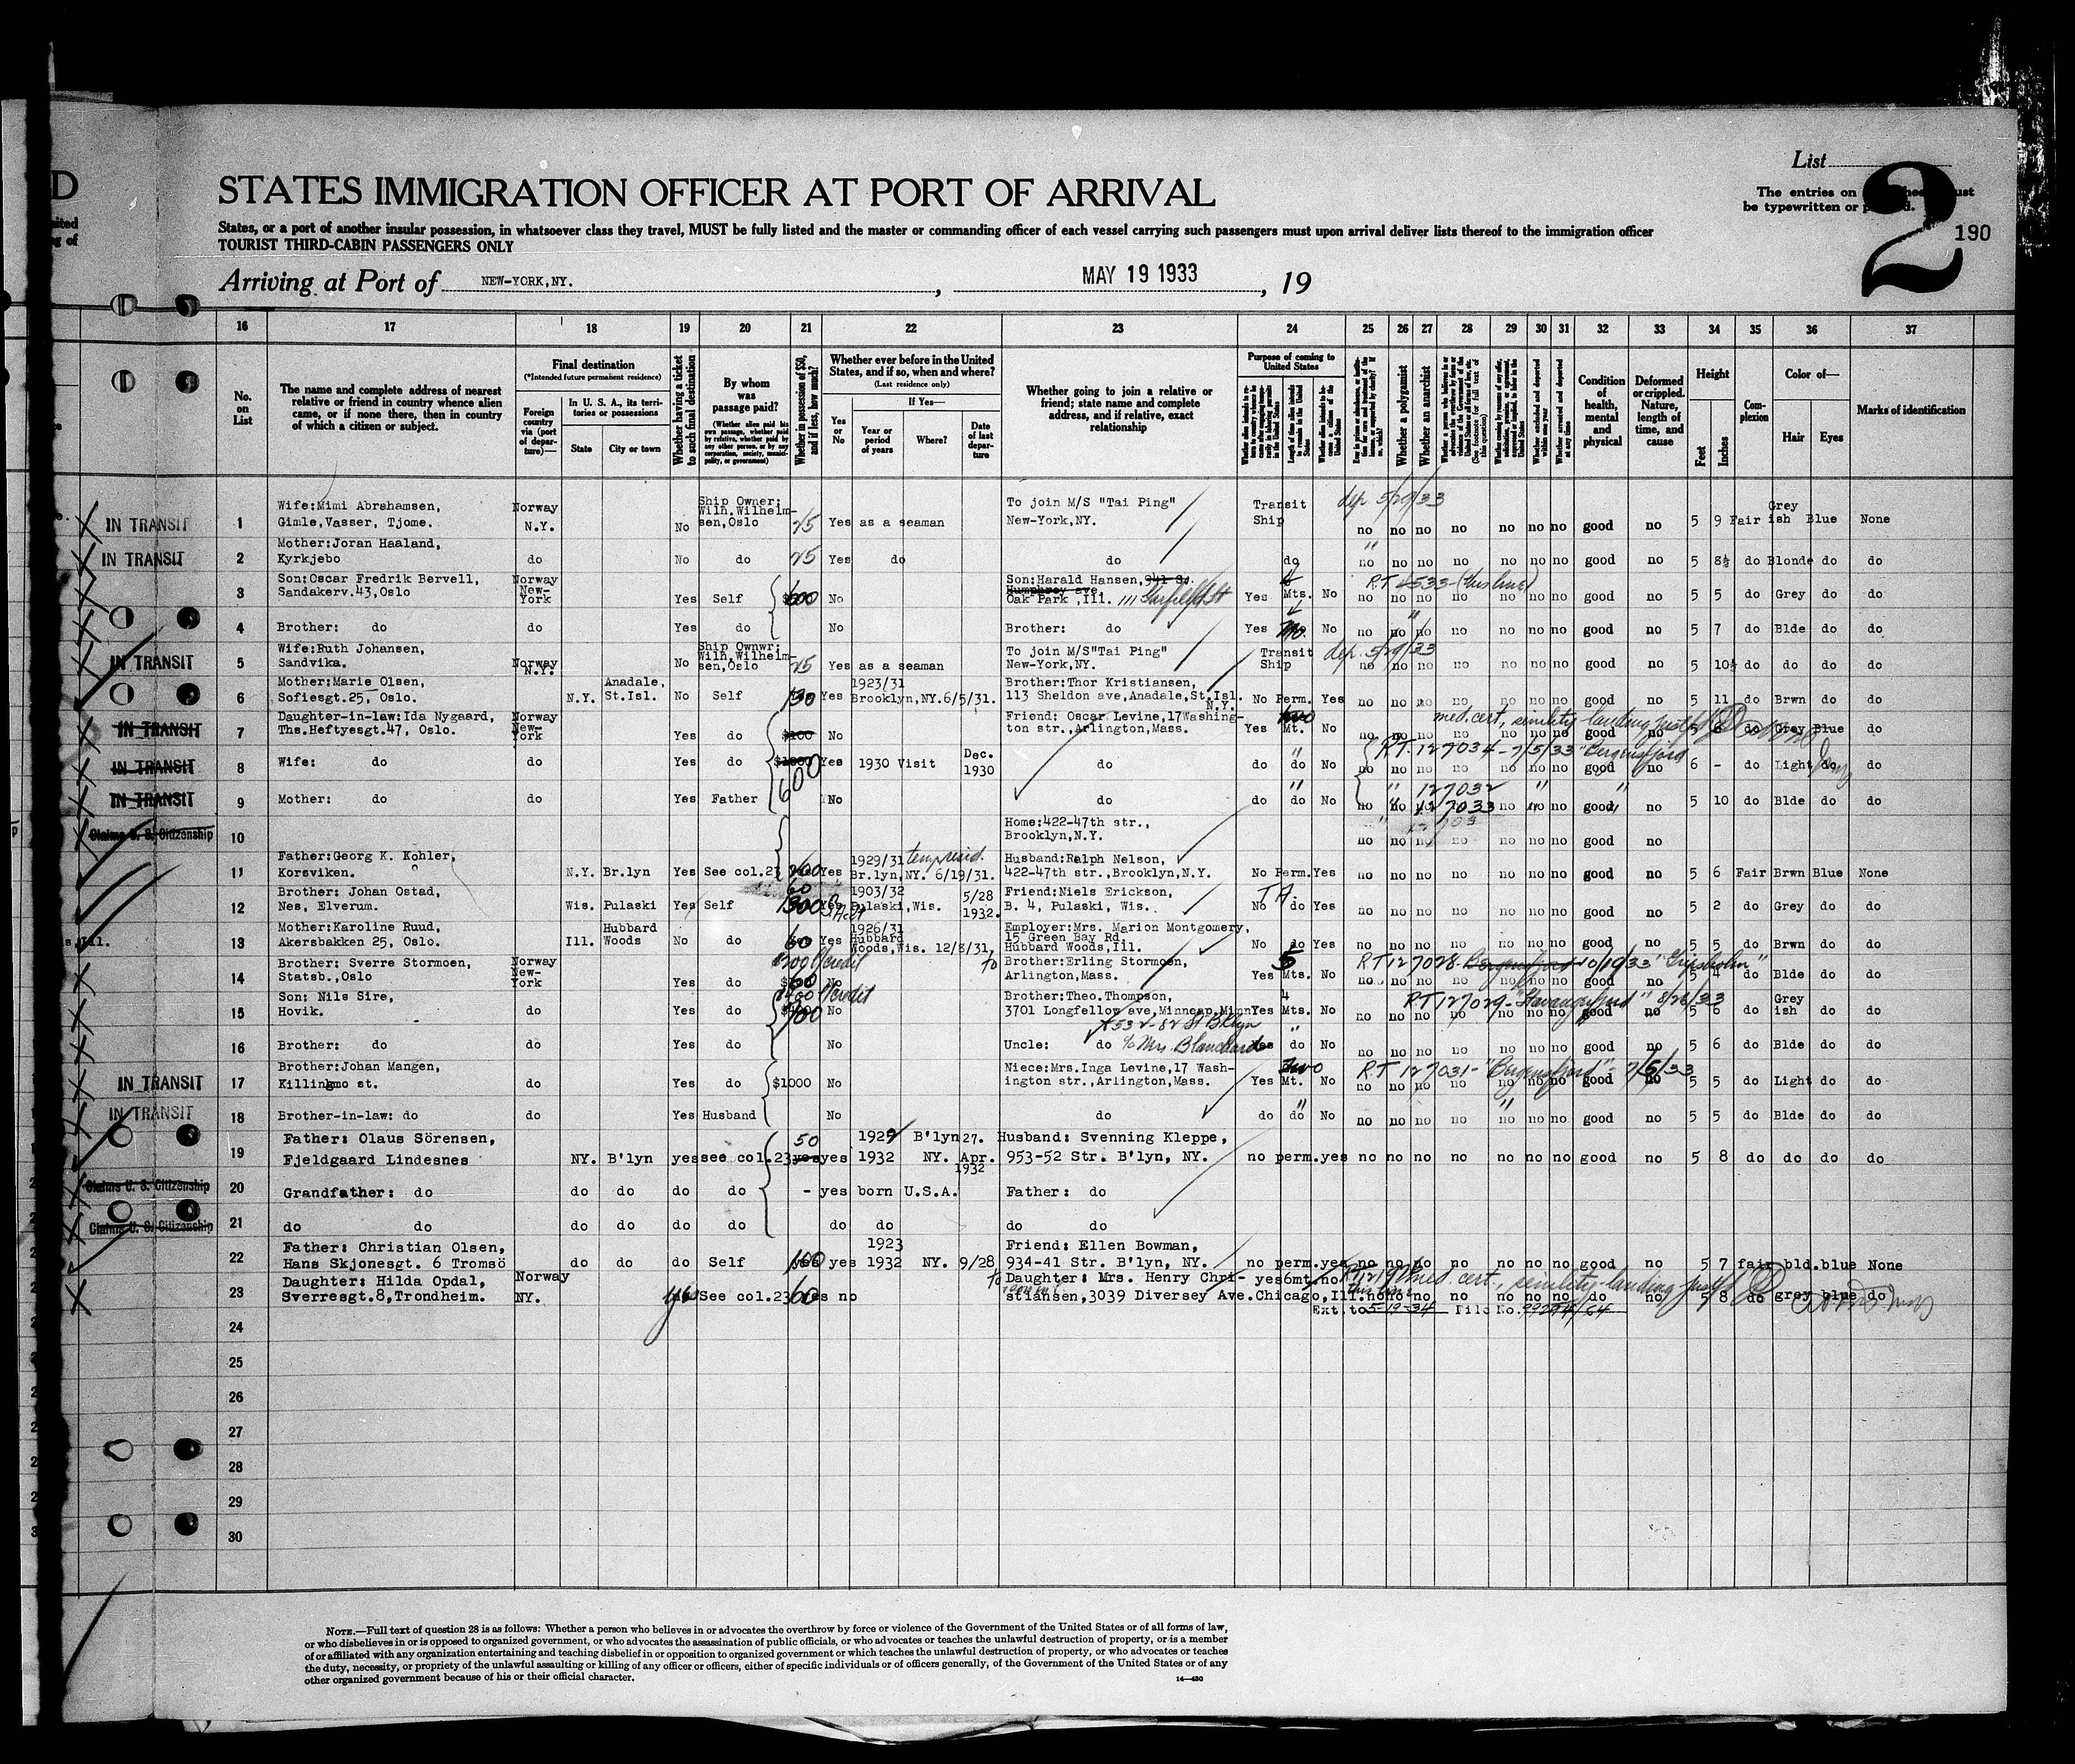 List
2
The entries on
be typewritten or
190
D
STATES IMMIGRATION OFFICER AT PORT OF ARRIVAL
States, or a port of another insular possession, in whatsoever class they travel, MUST be fully listed and the master or commanding officer of each vessel carrying such passengers must upon arrival deliver lists thereof to the immigration officer
TOURIST THIRD-CABIN PASSENGERS ONLY
Arriving at Port of NEW-YORK,NY. , MAY 19 1933 , 19
16 17 18 19 20 21 22 23 24 25 26 27 28 29 30 31 32 33 34 35 36 37
No. on List
The name and complete address of nearest relative or friend in country whence alien came, or if none there, then in country of which a citizen or subject.
Final destination
(*Intended future permanent residence)
Foreign country via (port of departure)—
In U. S. A., its territories or possessions
State City or town
Whether having a ticket to such final destination
By whom was passage paid?
(Whether alien paid his own passage, whether paid by relative, whether paid by any other person, or by any corporation, society, municipality, or government)
Whether in possession of $50, and if less, how much?
Whether ever before in the United States, and if so, when and where?
(Last residence only)
Yes or No
If Yes—
Year or period of years Where? Date of last departure
Whether going to join a relative or friend; state name and complete address, and if relative, exact relationship
Purpose of coming to United States
Whether a polygamist
Whether an anarchist
Condition of health, mental and physical
Deformed or crippled. Nature, length of time, and cause
Height
Feet Inches
Complexion
Color of—
Hair Eyes
Marks of identification
IN TRANSIT 1 Wife:Mimi Abrahamsen, Gimle,Vasser, Tjome. Norway N.Y. No Ship Owner: Wilh.Wilhelmsen,Oslo 25 Yes as a seaman To join M/S "Tai Ping" New-York,NY. Transit Ship dep 5/29/33 no no no no no no no good no 5 9 Fair Greyish Blue None
IN TRANSIT 2 Mother:Joran Haaland, Kyrkjebo do No do 25 Yes do do do " no no no no no no no good no 5 8½ do Blonde do do
3 Son:Oscar Fredrik Bervell, Sandakerv.43,Oslo Norway New-York Yes Self No Son:Harald Hansen, 941 So. Humphrey ave Oak Park ,Ill. 111 Garfield St Yes Mts. No no no no no no no no good no 5 5 do Grey do do
4 Brother: do do Yes do No Brother: do Yes No no no no no no no no good no 5 7 do Blde do do
IN TRANSIT 5 Wife:Ruth Johansen, Sandvika. Norway N.Y. No Ship Ownwr: Wilh.Wilhelmsen,Oslo 25 Yes as a seaman To join M/S"Tai Ping" New-York,NY. Transit Ship dep. 5/29/33 no no no no no no no good no 5 10½ do do do do
6 Mother:Marie Olsen, Sofiesgt.25, Oslo. N.Y. Anadale, St.Isl. No Self 130 Yes 1923/31 Brooklyn,NY.6/5/31. Brother:Thor Kristiansen, 113 Sheldon ave,Anadale,St.Isl. N.Y. No Perm. Yes no no no no no no no good no 5 11 do Brwn do do
IN TRANSIT 7 Daughter-in-law:Ida Nygaard, Ths.Heftyesgt.47, Oslo. Norway New-York Yes do $100 No Friend: Oscar Levine,17Washington str.,Arlington,Mass. Yes two Mt. No med. cert, senility landing no no no no no no no good no 5 6 do Grey Blue do
IN TRANSIT 8 Wife: do do Yes do 600 Yes 1930 Visit Dec. 1930 do do " do No RT. 127034 - 7/5/33 "Bergensfjord no no no no no no no good no 6 - do Light do do
IN TRANSIT 9 Mother: do do Yes Father No do do " do No " 127032 " " 127033 no no no good no 5 10 do Blde do do
Claims U. S. Citizenship 10 Home:422-47th str., Brooklyn,N.Y. no no no no no no no good no
11 Father:Georg K. Kohler, Korsviken. N.Y. Br.lyn Yes See col.23 Yes 1929/31 Br.lyn,NY. 6/19/31. Husband:Ralph Nelson, 422-47th str.,Brooklyn,N.Y. No Perm.Yes no no no no no no no good no 5 6 Fair Brwn Blue None
12 Brother: Johan Ostad, Nes, Elverum. Wis. Pulaski Yes Self Yes 1903/32 Pulaski,Wis. 5/28 1932. Friend:Niels Erickson, B. 4, Pulaski, Wis. No do Yes no no no no no no no good no 5 2 do Grey do do
13 Mother:Karoline Ruud, Akersbakken 25, Oslo. Ill. Hubbard Woods No do 60 Yes 1926/31 Hubbard Woods,Wis. 12/8/31, Employer:Mrs. Marion Montgomery, 15 Green Bay Rd. Hubbard Woods,Ill. No do Yes no no no no no no no good no 5 5 do Brwn do do
14 Brother: Sverre Stormoen, Statsb.,Oslo Norway New-York Yes do No to Brother:Erling Stormoen, Arlington,Mass. Yes 5 Mts. No RT 127028 Bergensfjord 10/19/33 "Gripsholm" no no no no no no no good no 5 4 do Blde do do
15 Son: Nils Sire, Hovik. do Yes do 700 No Brother:Theo.Thompson, 3701 Longfellow ave,Minneap,Minn Yes 4 Mts. No RT 127029 - "Stavangerfjord" 8/26/33 no no no no no no no good no 5 6 do Greyish do do
16 Brother: do do Yes do No Uncle: do % Mrs. Blanchard 532-82 St Bklyn Yes " do No no no no no no no no good no 5 6 do Blde do do
IN TRANSIT 17 Brother:Johan Mangen, Killingmo st. do Yes do $1000 No Niece:Mrs.Inga Levine,17 Washington str.,Arlington,Mass. Yes two Mt. No RT 127031 - "Bergensfjord" - 7/5/33 no no no no no no no good no 5 5 do Light do do
IN TRANSIT 18 Brother-in-law: do do Yes Husband No do do " do No no no no no no no no good no 5 5 do Blde do do
19 Father: Olaus Sörensen, Fjeldgaard Lindesnes NY. B'lyn yes see col.23 50 yes yes 1929 1932 B'lyn NY. 27. Apr. 1932 Husband: Svenning Kleppe, 953-52 Str. B'lyn, NY. no perm.yes no no no no no no no good no 5 8 do do do do
Claims U. S. Citizenship 20 Grandfather: do do do do do - yes born U.S.A. Father: do
Claims U. S. Citizenship 21 do do do do do do do do do do
22 Father: Christian Olsen, Hans Skjonesgt. 6 Tromsö do do do Self 100 yes 1923 1932 NY. 9/28 Friend: Ellen Bowman, 934-41 Str. B'lyn, NY. no perm.yes no no no no no no no good no 5 7 fair bld.blue None
23 Daughter: Hilda Opdal, Sverresgt.8,Trondheim. Norway NY. yes See col.23 60 yes no to Daughter: Mrs. Henry Christiansen,3039 Diversey Ave.Chicago,Ill. yes 6mt.no med. cert., senility-landing no no no no no no no do no 5 8 do grey blue do
Ext.to 5-19-34 File No. 99294/64
24
25
26
27
28
29
30
NOTE.—Full text of question 28 is as follows: Whether a person who believes in or advocates the overthrow by force or violence of the Government of the United States or of all forms of law,
or who disbelieves in or is opposed to organized government, or who advocates the assassination of public officials, or who advocates or teaches the unlawful destruction of property, or is a member
of or affiliated with any organization entertaining and teaching disbelief in or opposition to organized government or which teaches the unlawful destruction of property, or who advocates or teaches
the duty, necessity, or propriety of the unlawful assaulting or killing of any officer or officers, either of specific individuals or of officers generally, of the Government of the United States or of any
other organized government because of his or their official character.
14—430